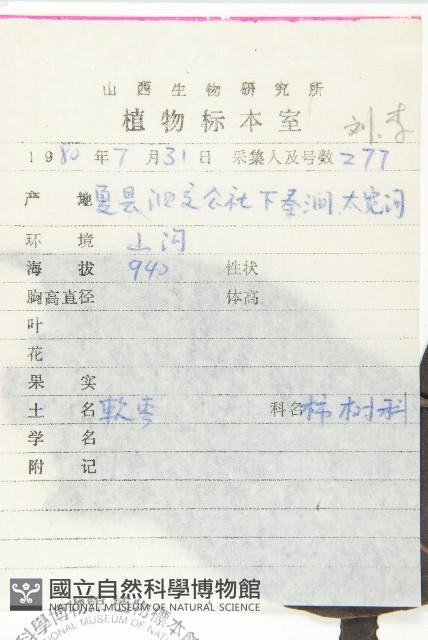 山西生物研究所
植物标本室
刘.李
1980年7月31日 采集人及号数 277
产地 夏县泗交公社下圣涧太宽河
环境 山沟
海拔 940 性状
胸高直径 体高
叶
花
果实
土名 软枣 科名 柿树科
学名
附记
國立自然科學博物館
NATIONAL MUSEUM OF NATURAL SCIENCE